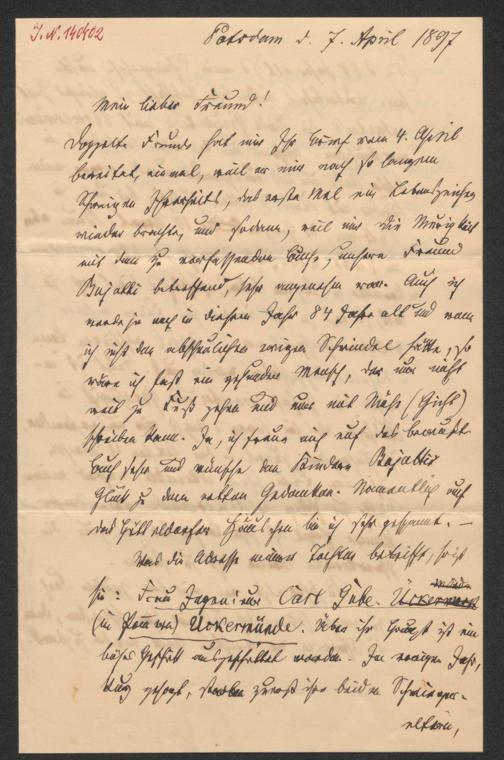 J. N. 140402
Potsdam d. 7. April 1897
Mein lieber Freund!
Doppelte Freude hat mir Ihr Brief vom 4. April
bereitet, einmal, weil er mir nach so langem
Schweigen Ihrerseits, das erste Mal ein Lebenszeichen
wieder brachte, und sodann, weil mir die Neuigkeit
mit dem zu verfassenden Buche, unsern Freund
Bajatti betreffend, sehr angenehm war. Auch ich
werde ja noch in diesem Jahr 84 Jahre alt und wenn
ich nicht den abscheulichen ewigen Schwindel hätte, so
wäre ich fast ein gesunder Mensch, der nur nicht
weit zu Fuß gehen und nur mit Mühe (Gicht)
schreiben kann. Ja, ich freue mich auf das bewußte
Buch sehr und wünsche den Kindern Bajattis
Glück zu dem netten Gedanken. Namentlich auf
das Hütteldorfer Häuschen bin ich sehr gespannt. –
Was die Adresse meiner Tochter betrifft, so ist
sie: Frau Ingenieur Carl
(in Pommern) Uckermünde. Über ihr Haupt ist ein
böses Geschick ausgeschüttet worden. Im vorigen Jahr,
kurz gesagt, starben zuerst ihre beiden Schwieger-
eltern,